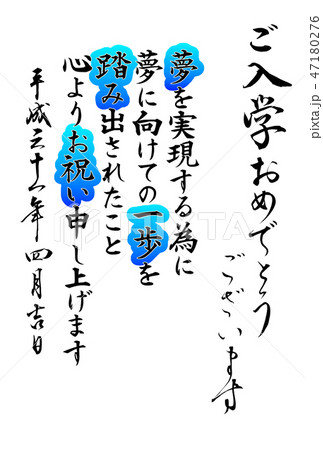 ご入学おめでとう
ございます
夢を実現する為に
夢に向けての一歩を
踏み出されたこと
心よりお祝い申し上げます
平成三十一年四月吉日
PIXTA
47180276